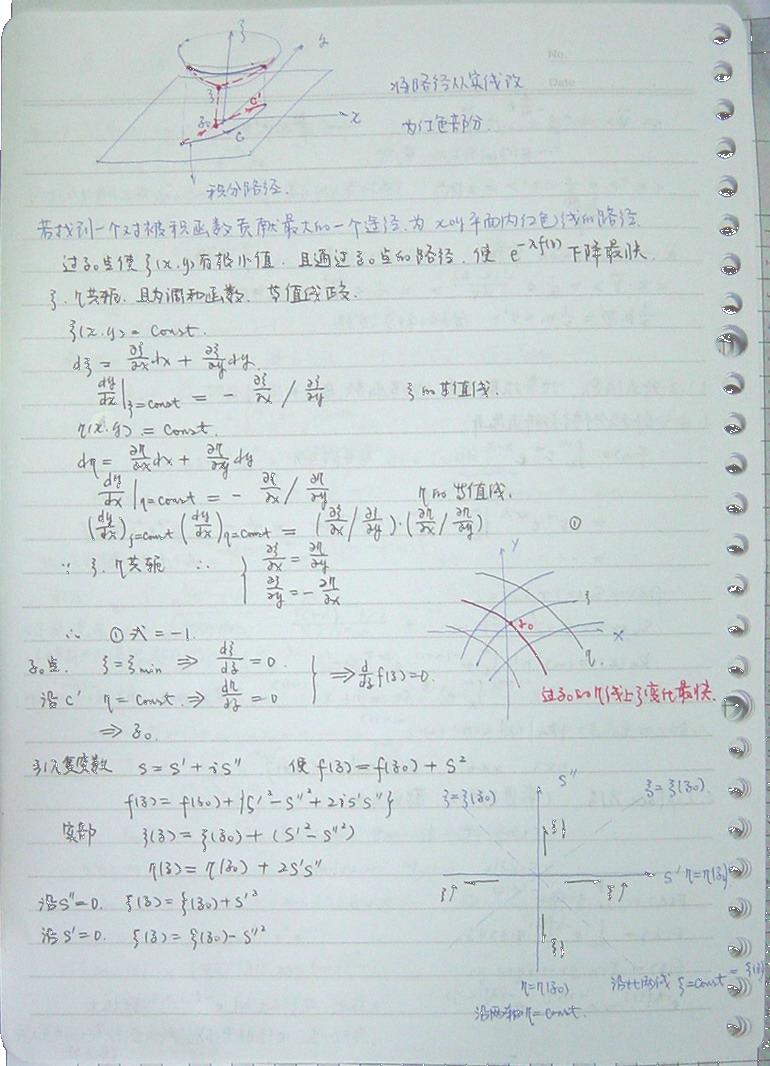 ξ
y
x
ξ
z₀
c'
c
No.
Date
将路径从实线改
为红色部分.
积分路径.
若找到一个对被积函数贡献最大的一个途径.为 xoy平面内红色线的路径.
过z₀点使ξ(x,y)有极小值. 且通过z₀点的路径. 使 e^{-λf(z)} 下降最快.
ξ. η共轭. 且为调和函数. 等值线正交.
ξ(x.y) = Const.
dξ = ∂ξ/∂x dx + ∂ξ/∂y dy.
dy/dx |ξ=const = - ∂ξ/∂x / ∂ξ/∂y ξ的等值线.
η(x.y) = Const.
dη = ∂η/∂x dx + ∂η/∂y dy
dy/dx |η=const = - ∂η/∂x / ∂η/∂y η的等值线.
(dy/dx)ξ=const (dy/dx)η=const = (∂ξ/∂x / ∂ξ/∂y)·(∂η/∂x / ∂η/∂y) ①
∵ ξ. η共轭 ∴ { ∂ξ/∂x = ∂η/∂y
∂ξ/∂y = - ∂η/∂x
∴ ①式 = -1.
Y
ξ
z₀
X
η.
过z₀的η线上ξ变化最快.
z₀点. ξ = ξmin ⇒ dξ/dz = 0.
沿 c' η = Const ⇒ dη/dz = 0 } ⇒ d/dz f(z) = 0.
⇒ z₀.
引入复变数 S = S' + iS'' 使 f(z) = f(z₀) + S²
f(z) = f(z₀) + {S'² - S''² + 2iS'S''}
实部 ξ(z) = ξ(z₀) + (S'² - S''²)
η(z) = η(z₀) + 2S'S''
沿S''=0. ξ(z) = ξ(z₀) + S'²
沿S'=0. ξ(z) = ξ(z₀) - S''²
S''
ξ=ξ(z₀)
ξ=ξ(z₀)
ξ↓
S' η=η(z₀)
ξ↑
ξ↑
ξ↓
η=η(z₀)
沿两轴η=Const.
沿此两线 ξ=Const = ξ(z₀)